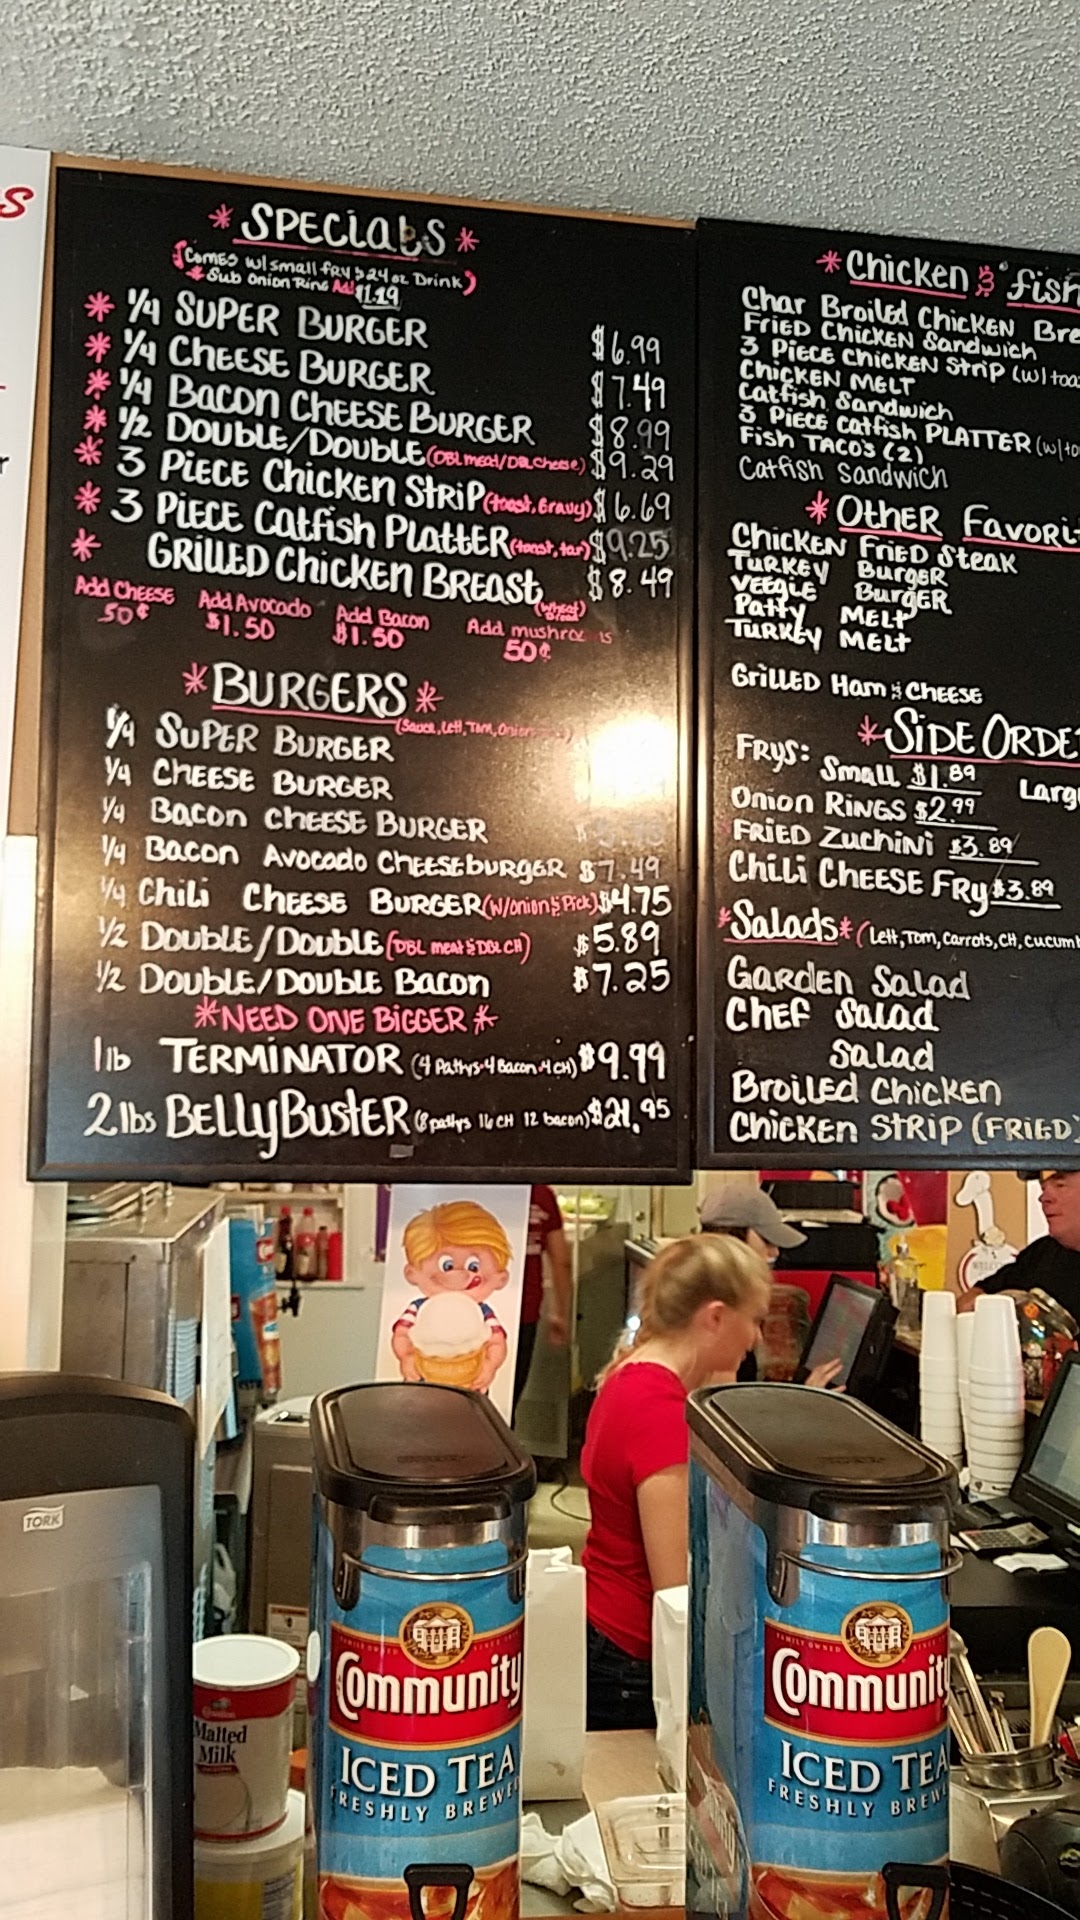 S
r
*SPECIALS*
(Comes w/ small fry & 24 oz Drink)
* Sub Onion Ring Add $1.19
* 1/4 SUPER BURGER $6.99
* 1/4 CHEESE BURGER $7.49
* 1/4 BACON CHEESE BURGER $8.99
* 1/2 DOUBLE/DOUBLE (DBL meat/DBL cheese) $9.29
* 3 PIECE CHICKEN STRIP (toast, Gravy) $6.69
* 3 PIECE Catfish Platter (toast, tar) $9.25
* GRILLED CHICKEN BREAST (Wheat Bread) $8.49
Add Cheese 50¢ Add Avocado $1.50 Add Bacon $1.50 Add mushrooms 50¢
*BURGERS*
(Sauce, Lett, Tom, Onion
1/4 SUPER BURGER
1/4 CHEESE BURGER
1/4 Bacon CHEESE BURGER
1/4 Bacon Avocado Cheeseburger $7.49
1/4 Chili CHEESE BURGER (W/onion & Pick) $4.75
1/2 DOUBLE/DOUBLE (DBL meat & DBL CH) $5.89
1/2 DOUBLE/DOUBLE Bacon $7.25
*NEED ONE BIGGER*
1 lb TERMINATOR (4 Pattys 4 Bacon 4 CH) $9.99
2 lbs BELLYBUSTER (8 pattys 16 CH 12 bacon) $21.95
*Chicken & fish
Char Broiled Chicken Bre
FRIED CHICKEN Sandwich
3 PIECE CHICKEN STRIP (w/ toa
CHICKEN MELT
Catfish Sandwich
3 PIECE catfish PLATTER (w/to
Fish TACO'S (2)
Catfish Sandwich
*OTHER FAVORIT
CHICKEN FRIED Steak
TURKEY BURGER
VEEGIE BURGER
Patty MELT
TURKEY MELT
GRILLED Ham & CHEESE
*SIDE ORDE
FRYS: Small $1.89 Larg
Onion RINGS $2.99
FRIED Zuchini $3.89
Chili CHEESE FRY $3.89
*Salads* (Lett, Tom, Carrots, CH, cucumb
GARDEN Salad
CHEF Salad
Salad
Broiled Chicken
Chicken STRIP (FRIED)
TORK
Malted
Milk
FAMILY OWNED SINCE
Community
ICED TEA
FRESHLY BREWE
FAMILY OWNED
Communit
ICED TEA
FRESHLY BREW